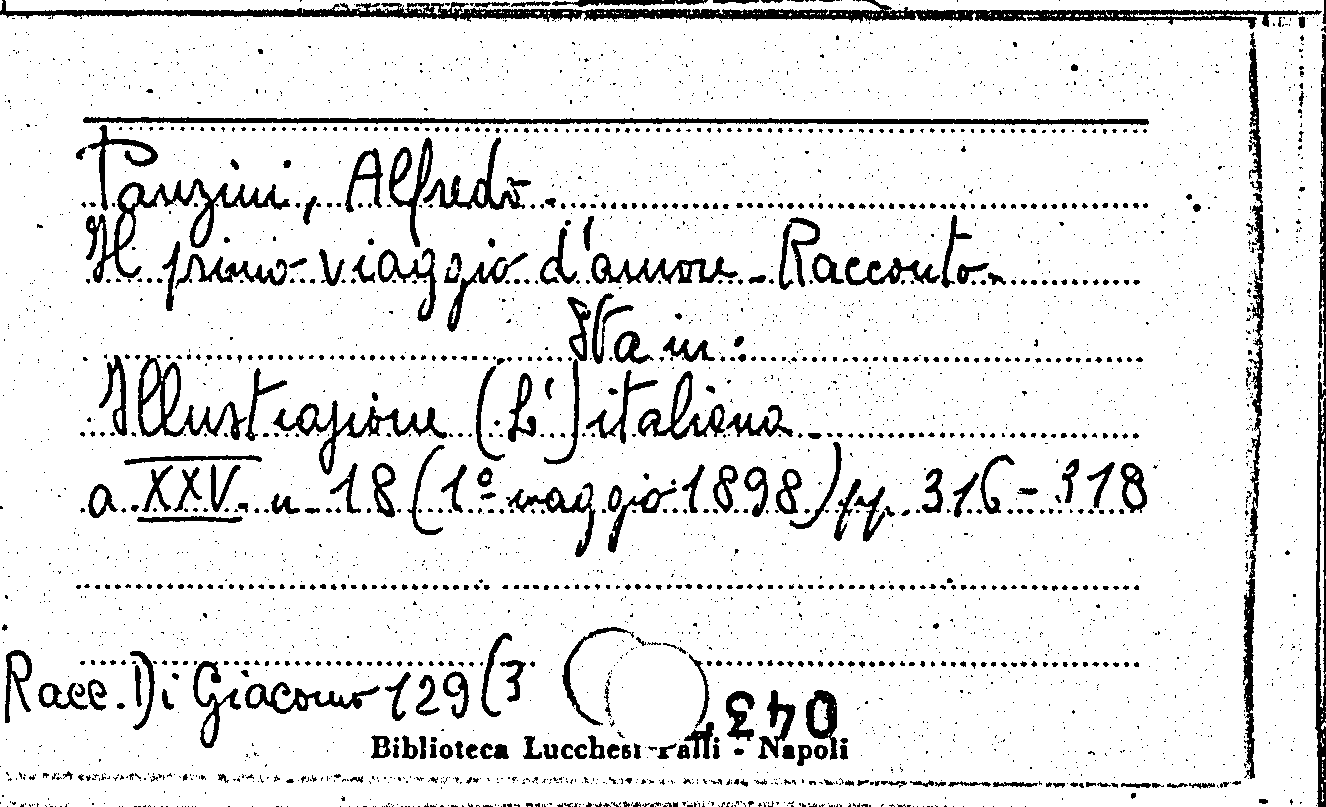 Panzini, Alfredo.
Il primo viaggio d'amore. Racconto.
Sta in:
Illustrazione (L') italiana.
a. XXV. n. 18 (1º maggio 1898) pp. 316-318
Racc. Di Giacomo 129 (3
043
Biblioteca Lucchesi-Palli - Napoli